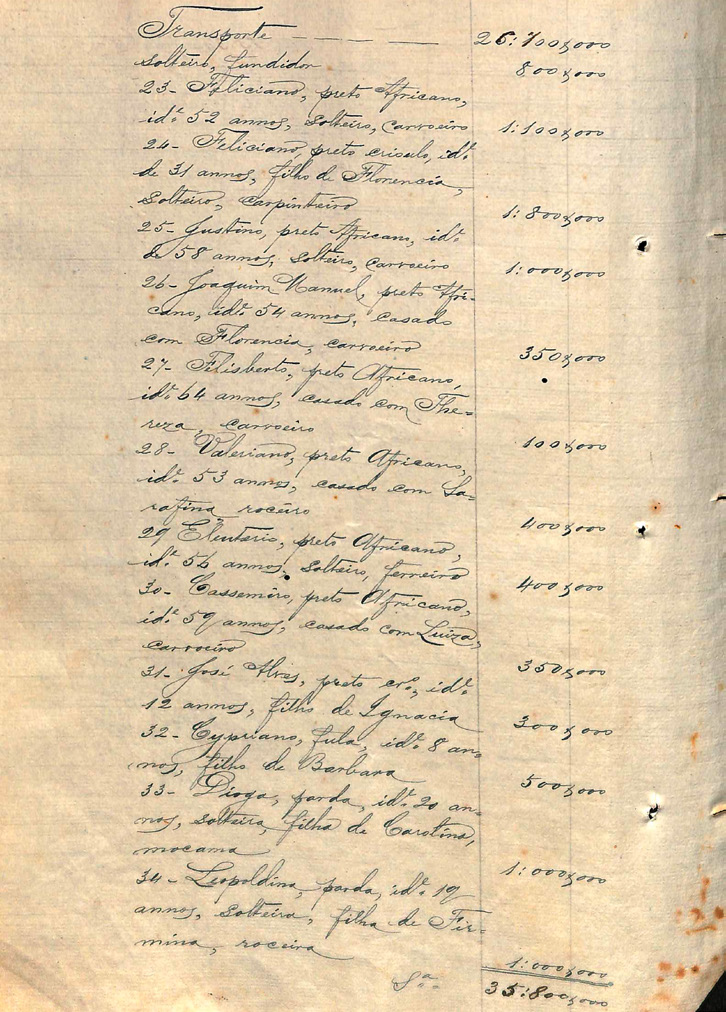 Transporte — — — — 26:700$000
solteiro, fundidor 800$000
23- Feliciano, preto Africano,
id.e 52 annos, solteiro, carvoeiro 1:100$000
24- Feliciano, preto crioulo, id.e
de 31 annos, filho de Florencia,
solteiro, carpinteiro 1:800$000
25- Justino, preto Africano, id.e
de 58 annos, solteiro, carvoeiro 1:000$000
26- Joaquim Manuel, preto Afri-
cano, id.e 54 annos, casado
com Florencia, carvoeiro 350$000
27- Flisberto, preto Africano,
id.e 64 annos, casado com The-
reza, carvoeiro 100$000
28- Valeriano, preto Africano,
id.e 53 annos, casado com Sa-
rafina roceiro 400$000
29 Eleuterio, preto Africano,
id.e 56 annos, solteiro, ferreiro 400$000
30- Cassemiro, preto Africano,
id.e 59 annos, casado com Luiza,
carvoeiro 350$000
31- José Alves, preto cr.o, id.e
12 annos, filho de Ignacia 300$000
32- Cypriano, fula, id.e 8 an-
nos, filho de Barbara 500$000
33- Dioga, parda, id.e 20 an-
nos, solteira, filha de Carolina,
mocama 1:000$000
34- Leopoldina, parda, id.e 19
annos, solteira, filha de Fir-
mina, roceira 1:000$000
S.a 35:800$000